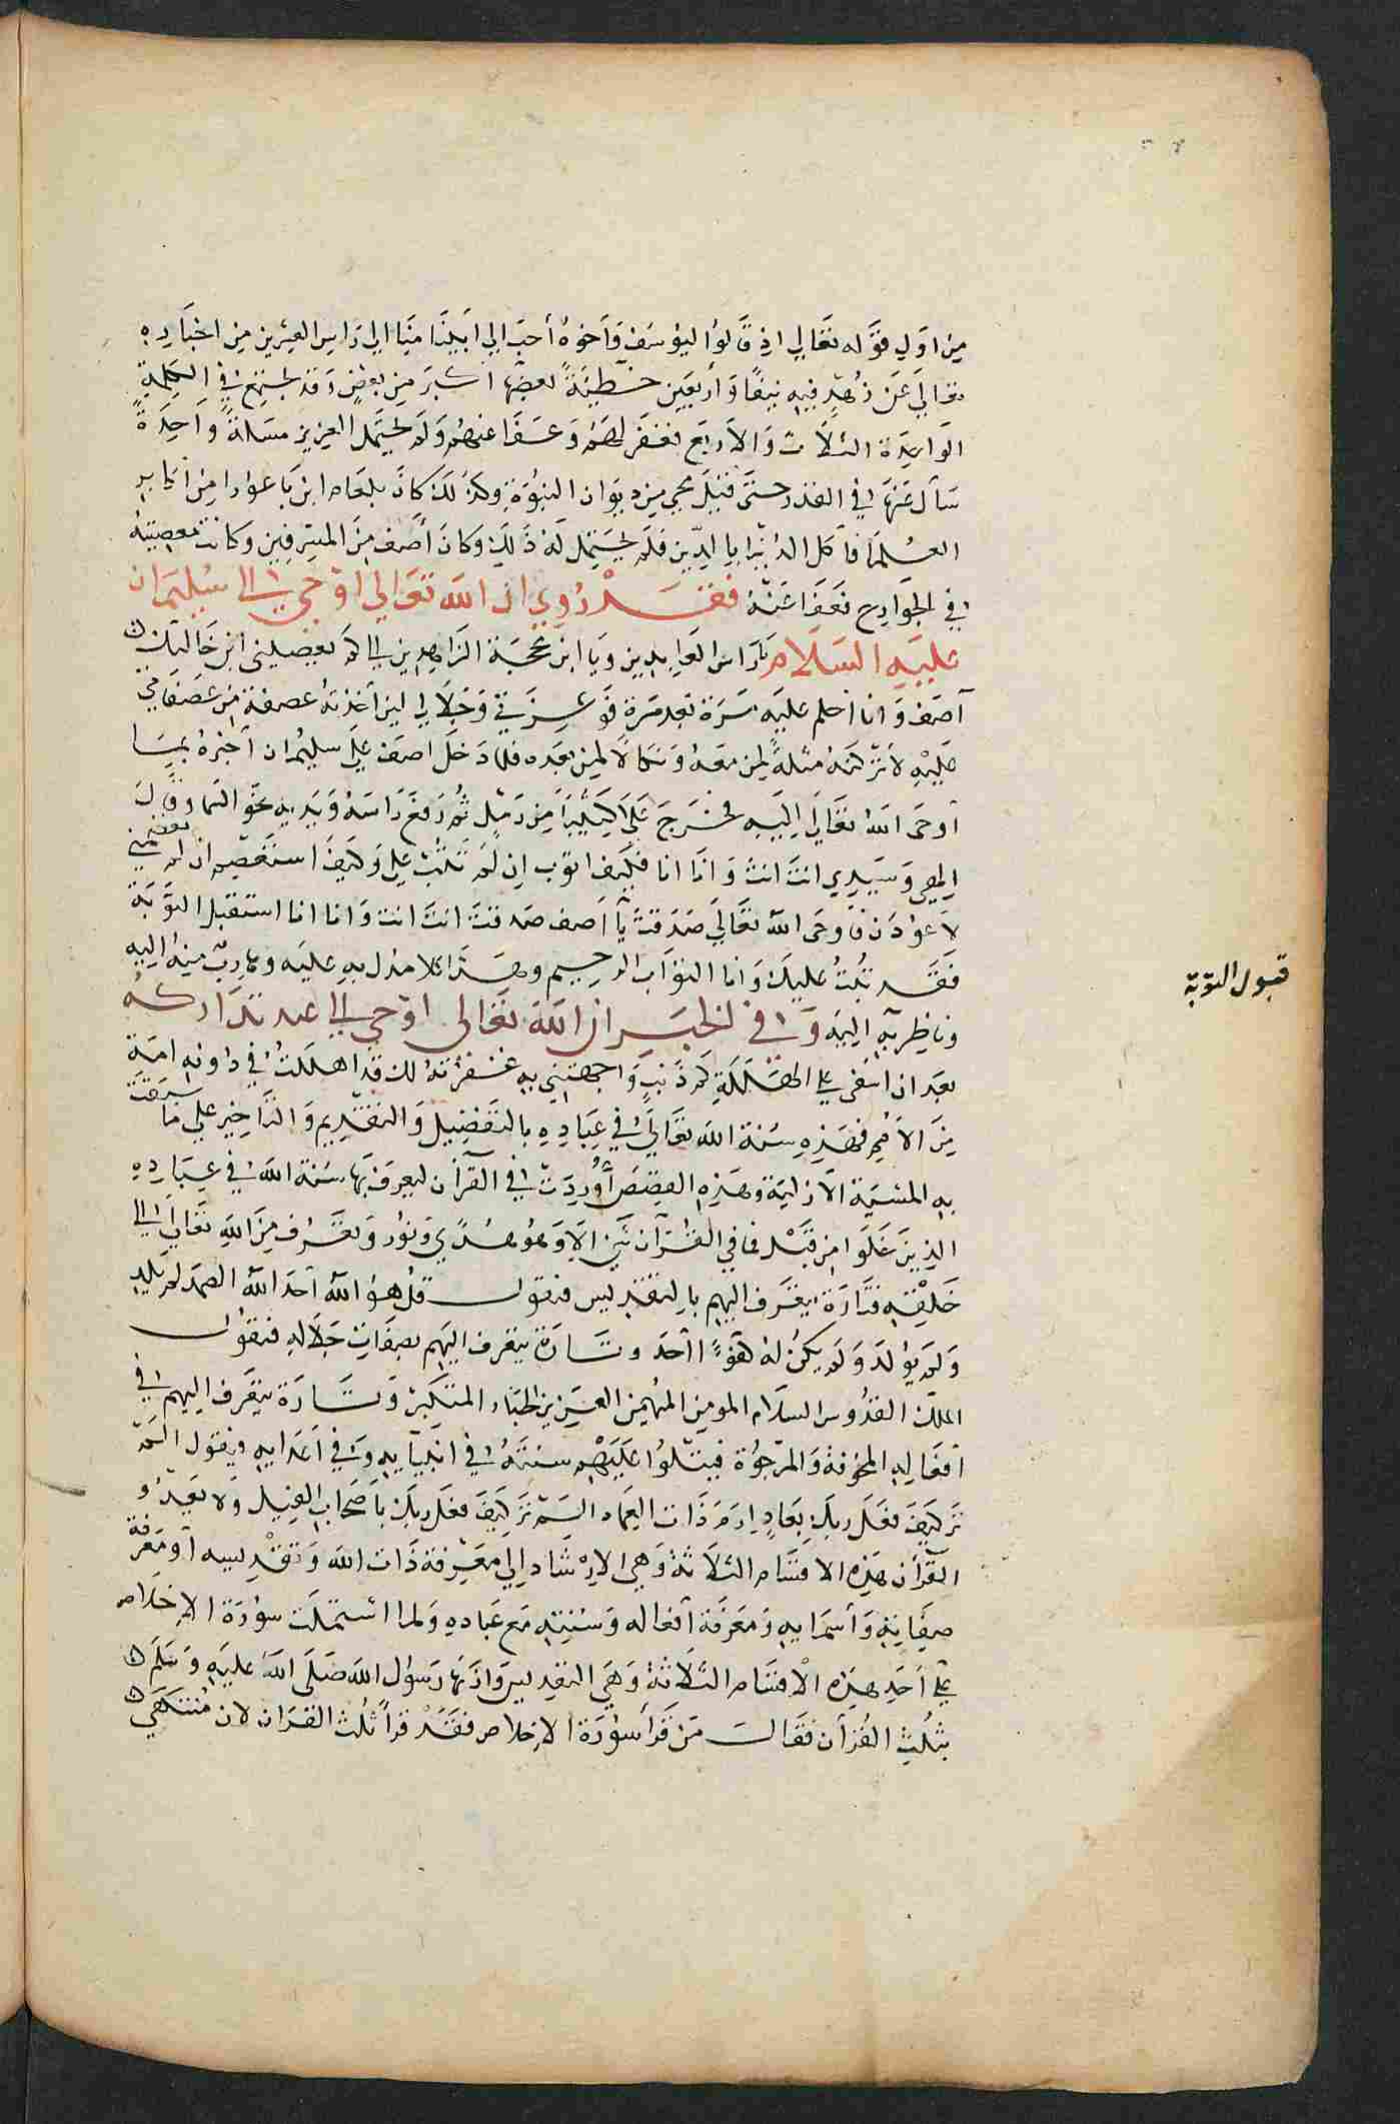 من اول قوله تعالى اذ قالوا ليوسف واخوه أحب الى ابينا منا الى راس العشرين من اخباره
تعالى عن زهدهم فيه نيفا وأربعين خطيئة بعضها أكبر من بعض وقد يجتمع في الكلمة
الواحدة الثلاث والاربع فغفر لهم وعفا عنهم ولم يحتمل العزيز مسلة واحدة
سأل عنها في القدر حتى قيل محي من ديوان النبوة وكذلك كان بلعام ابن باعورا من أكابر
العلما فأكل الدنيا بالدين فلم يحتمل له ذلك وكان أصف من المسرفين وكانت معصيته
في الجوارح فعفا عنه فقد روي ان الله تعالى اوحى الى سليمان
عليه السلام يا راس العابدين ويا ابن محجة الزاهدين الى كم يعصيني ابن خالتك
آصف وانا احلم عليه مرة بعد مرة فوعزتي وجلالي لين أخذته عصفة من عصفاتي
عليه لاتركنه مثلة لمن معه ونكالا لمن بعده فلما دخل اصف على سليمان أخبره بما
أوحى الله تعالى اليه فخرج حتى علا كثيبا من رمل ثم رفع راسه ويديه نحو السما وقال
الهي وسيدي انت انت وانا انا فكيف اتوب ان لم تتب علي وكيف استعصم ان لم تعصمني
لاعودن فأوحى الله تعالى صدقت يا أصف صدقت انت انت وانا انا استقبل التوبة
فقد تبت عليك وانا التواب الرحيم وهذا كلام مدل به عليه وهارب منه اليه
وناظر به اليه وفي الخبر ان الله تعالى اوحى الى عبد تداركه
بعد ان اشفى على الهلكة كم ذنب واجهتني به غفرته لك قد اهلكت في دونه امة
من الأمم فهذه سنة الله تعالى في عباده بالتفضيل والتقديم والتاخير على ما سبقت
به المشية الأزلية وهذه القصص أوردت في القرآن ليعرف بها سنة الله في عباده
الذين خلوا من قبل فما في القرآن شي الا وهو هدى ونور وتعرف من الله تعالى الى
خلقه فتارة يتعرف اليهم بالتقديس فيقول قل هو الله أحد الله الصمد لم يلد
ولم يولد ولم يكن له كفوًا أحد وتارة يتعرف اليهم بصفات جلاله فيقول
الملك القدوس السلام المومن المهيمن العزيز الجبار المتكبر وتارة يتعرف اليهم في
أفعاله المخوفة والمرجوة فيتلوا عليهم سنته في انبيايه وفي أعدايه فيقول الم
تر كيف فعل ربك بعاد ارم ذات العماد الم تر كيف فعل ربك بأصحاب الفيل ولا يعدو
القرأن هذه الاقسام الثلاثة وهي الارشاد الى معرفة ذات الله وتقديسه أو معرفة
صفاته وأسمايه ومعرفة أفعاله وسنته مع عباده ولما اشتملت سورة الاخلاص
على أحد هذه الاقسام الثلاثة وهي التقديس وازنها رسول الله صلى الله عليه وسلم
بثلث القرآن فقال من قرأ سورة الاخلاص فقد قرأ ثلث القران لان منتهى
قبول التوبة